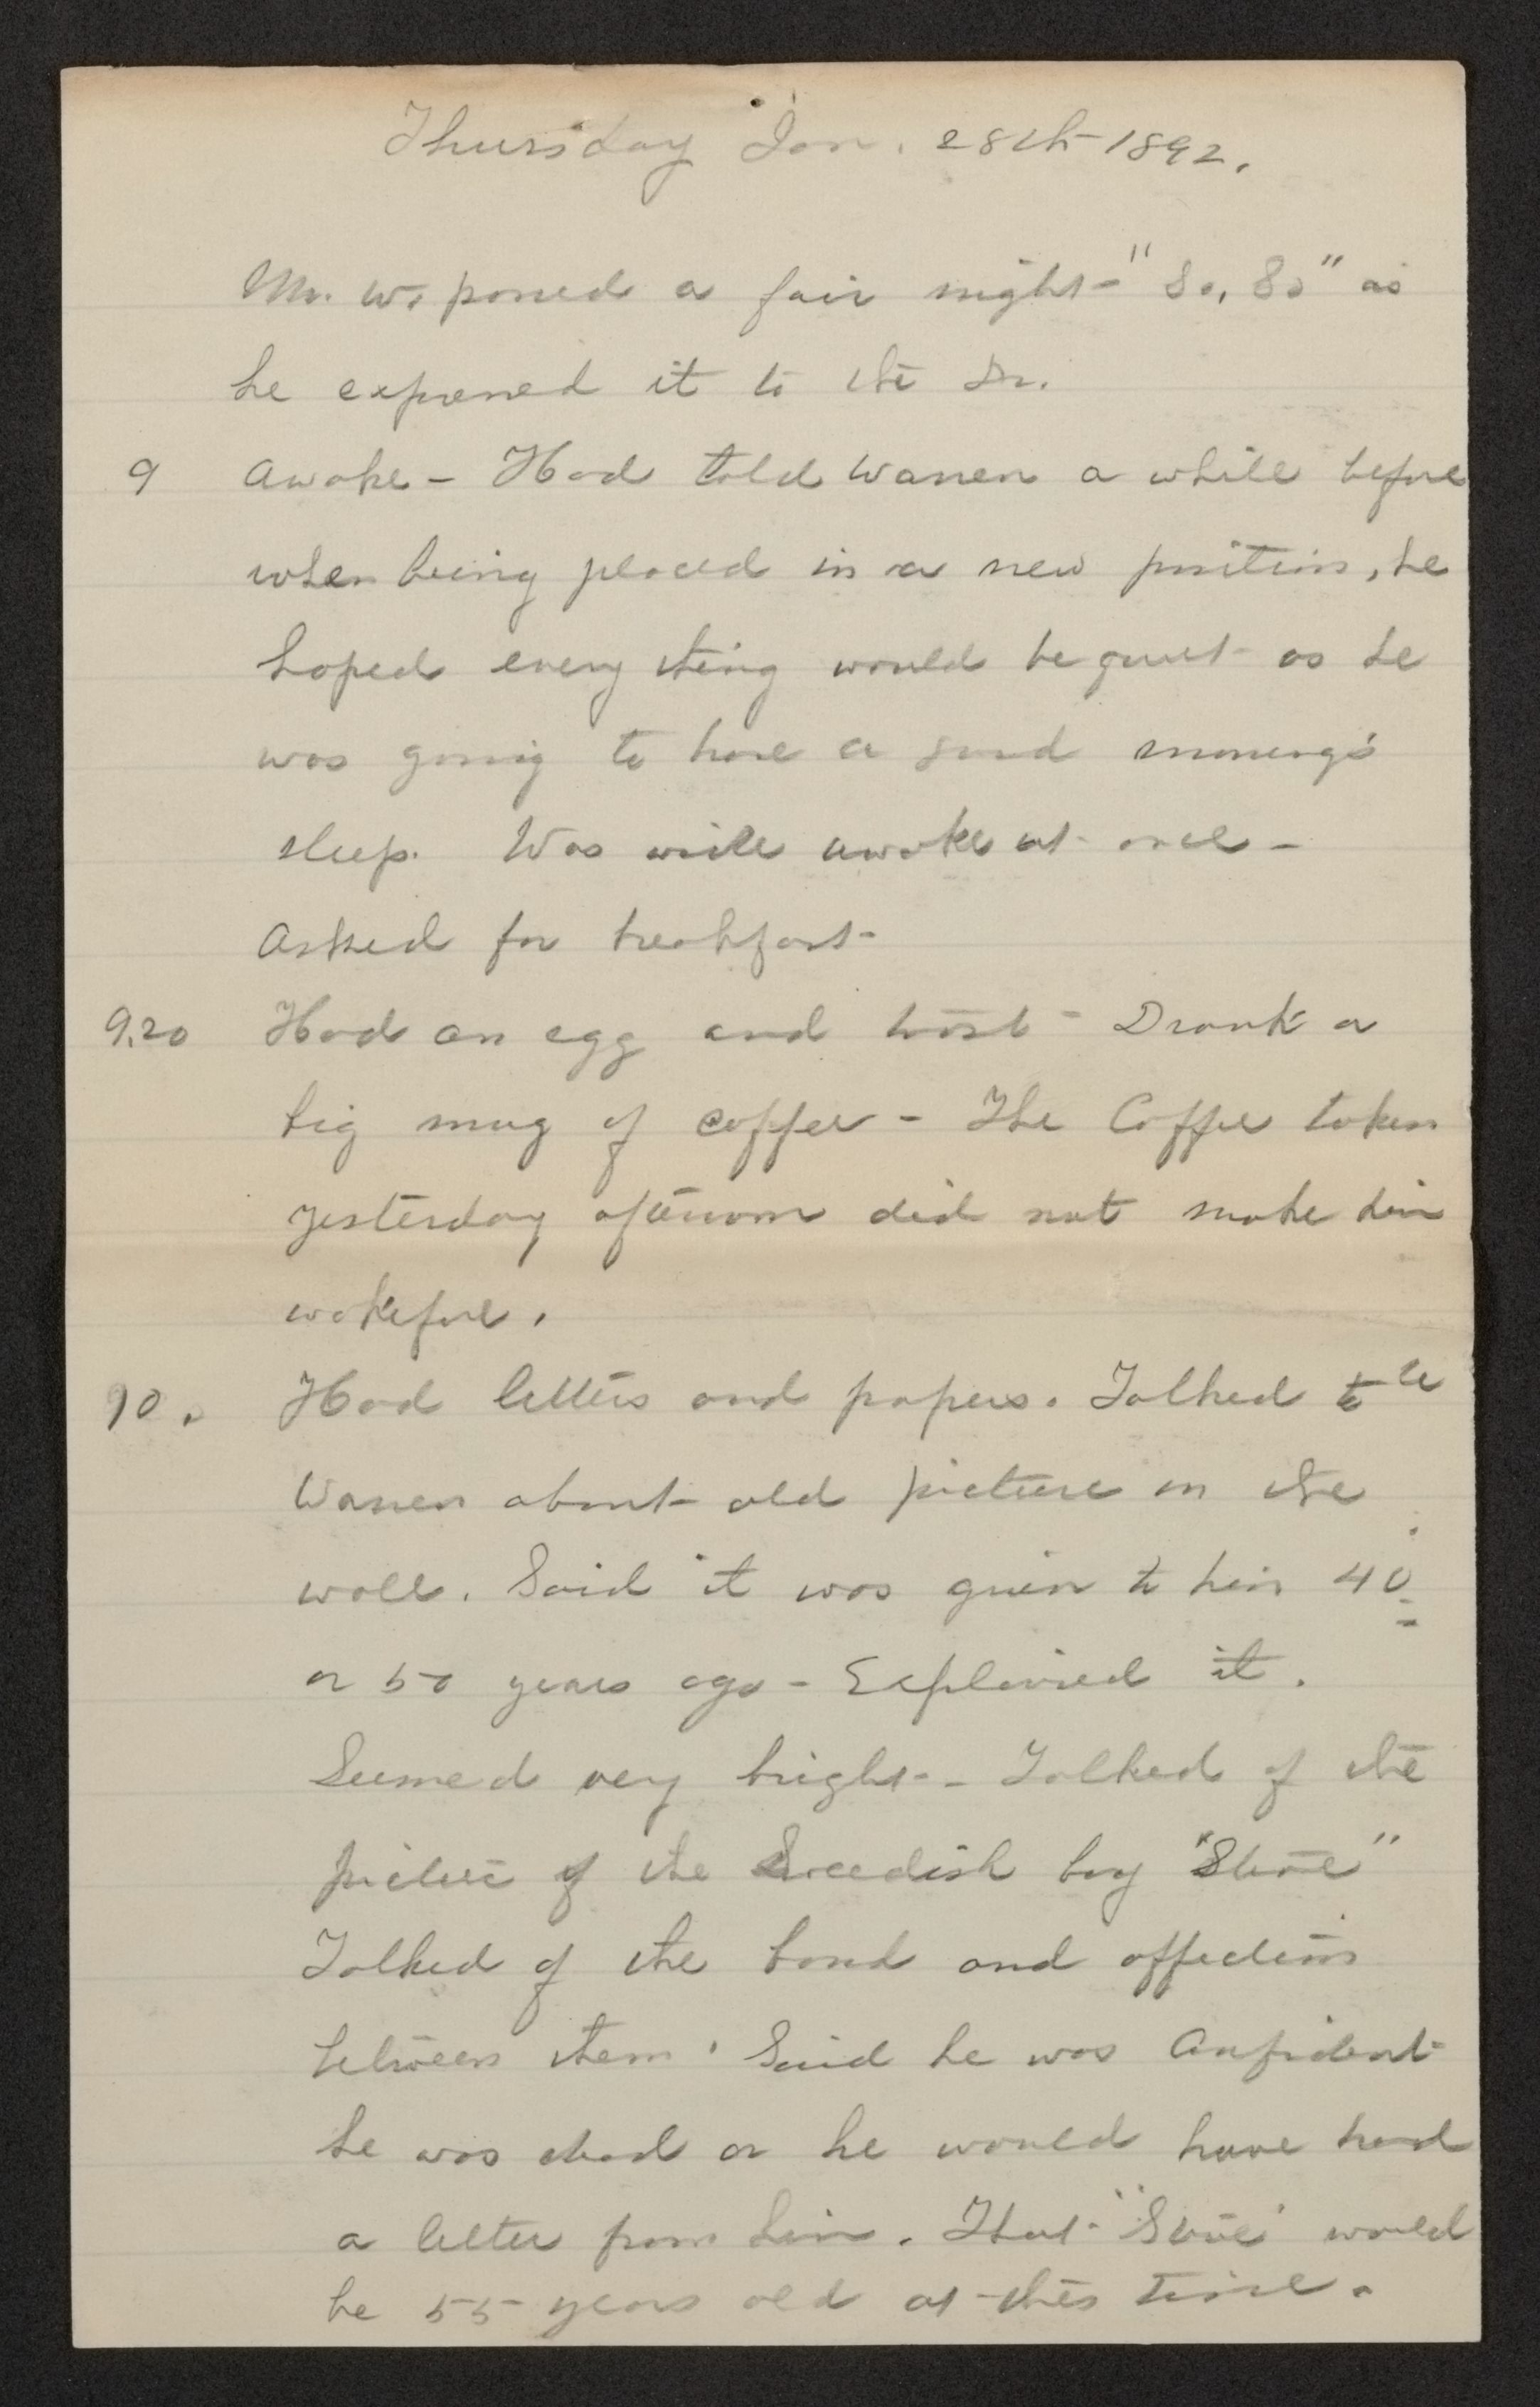 Thursday Jan. 28th 1892.
Mr. W. passed a fair night - "So, So" as
he expressed it to the Dr.
9 Awoke - Had told Warren a while before
when being placed in a new position, he
hoped every thing would be quiet as he
was going to have a good morning's
sleep. Was wide awake at once -
Asked for breakfast -
9.20 Had an egg and toast - Drank a
big mug of coffee - The Coffee taken
yesterday afternoon did not make him
wakeful.
10. Had letters and papers. Talked to
Warren about old picture on the
wall. Said it was given to him 40
or 50 years ago - Explained it.
Seemed very bright - Talked of the
picture of the Swedish boy
Talked of the bond and affection
between them. Said he was confident
he was dead or he would have had
a letter from him. That would
be 55 years old at this time.